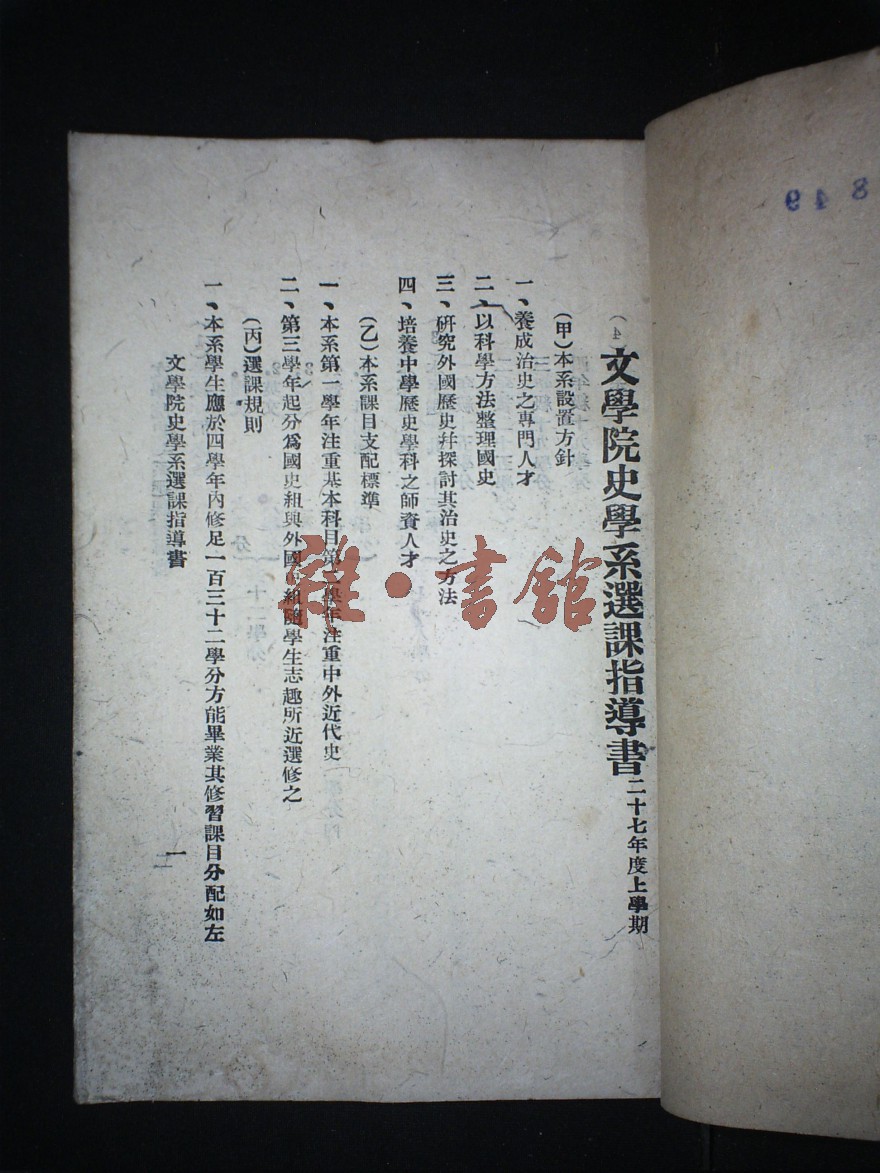 (4)
文學院史學系選課指導書 二十七年度上學期
(甲)本系設置方針
一、養成治史之專門人才
二、以科學方法整理國史
三、研究外國歷史幷探討其治史之方法
四、培養中學歷史學科之師資人才
(乙)本系課目支配標準
一、本系第一學年注重基本科目第二學年注重中外近代史
二、第三學年起分爲國史組與外國組隨學生志趣所近選修之
(丙)選課規則
一、本系學生應於四學年內修足一百三十二學分方能畢業其修習課目分配如左
文學院史學系選課指導書 一
雜·書館